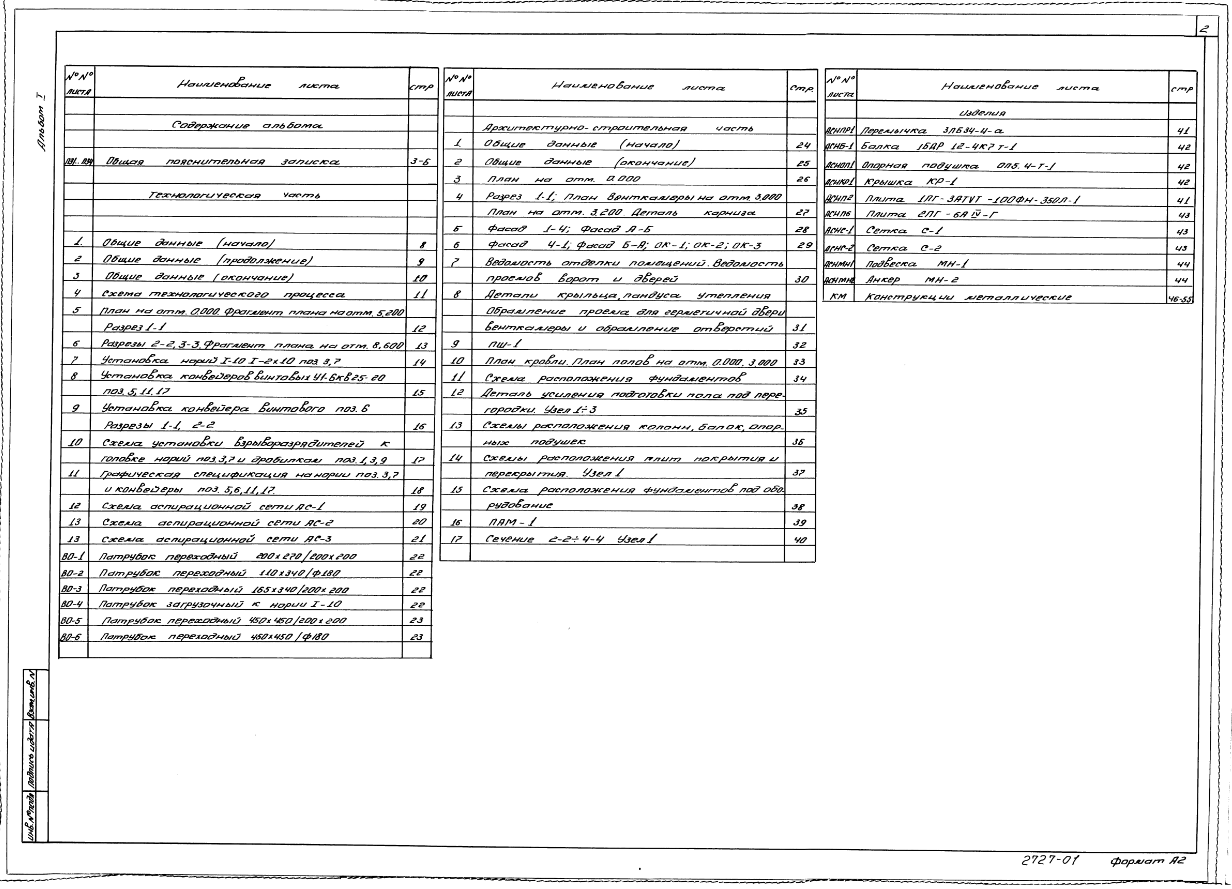 2
Альбом I
№№ листа Наименование листа стр
Содержание альбома
ПЗ1..ПЗ4 Общая пояснительная записка 3-5
Технологическая часть
1. Общие данные (начало) 8
2 Общие данные (продолжение) 9
3 Общие данные (окончание) 10
4 Схема технологического процесса 11
5 План на отм. 0.000. Фрагмент плана на отм. 5,200
Разрез 1-1 12
6 Разрезы 2-2, 3-3. Фрагмент плана на отм. 8,600 13
7 Установка норий I-10 I-2х10 поз. 3,7 14
8 Установка конвейеров винтовых У1-БКВ25-20
поз. 5, 11, 17 15
9 Установка конвейера винтового поз. 6
Разрезы 1-1, 2-2 16
10 Схема установки взрыворазрядителей к
головке норий поз.3,7 и дробилкам поз. 1,3,9 17
11 Графическая спецификация на нории поз. 3,7
и конвейеры поз. 5,6,11,17. 18
12 Схема аспирационной сети АС-1 19
13 Схема аспирационной сети АС-2 20
13 Схема аспирационной сети АС-3 21
ВО-1 Патрубок переходный 200х270/200х200 22
ВО-2 Патрубок переходный 110х340/ф180 22
ВО-3 Патрубок переходный 165х340/200х200 22
ВО-4 Патрубок загрузочный к нории I-10 22
ВО-5 Патрубок переходный 450х450/200х200 23
ВО-6 Патрубок переходный 450х450/ф180 23
№№ листа Наименование листа стр.
Архитектурно-строительная часть
1 Общие данные (начало) 24
2 Общие данные (окончание) 25
3 План на отм. 0.000 26
4 Разрез 1-1; План венткамеры на отм. 3,000
План на отм. 3.200 Деталь карниза 27
5 Фасад 1-4; Фасад А-Б 28
6 Фасад 4-1; Фасад Б-А; ОК-1; ОК-2; ОК-3 29
7 Ведомость отделки помещений. Ведомость
проемов ворот и дверей 30
8 Детали крыльца, пандуса утепления
Обрамление проема для герметичной двери
венткамеры и обрамление отверстий 31
9 ПШ-1 32
10 План кровли. План полов на отм. 0.000, 3,000 33
11 Схема расположения фундаментов 34
12 Деталь усиления подготовки пола под пере-
городки. Узел 1÷3 35
13 Схемы расположения колонн, балок, опор-
ных подушек 36
14 Схемы расположения плит покрытия и
перекрытия. Узел 1 37
15 Схема расположения фундаментов под обо-
рудование 38
16 ПАМ-1 39
17 Сечение 2-2÷4-4 Узел 1 40
№№ листа Наименование листа стр
Изделия
АСИПР1 Перемычка 3ПБ34-4-а 41
АСИБ-1 Балка 1БДР 12-4К7т-1 42
АСИОП1 Опорная подушка ОП5.4-Т-1 42
АСИКР1 Крышка КР-1 42
АСИП2 Плита 1ПГ-3АТVТ-100ФН-350Л-1 41
АСИП6 Плита 2ПГ-6АIV-Г 43
АСИС-1 Сетка С-1 43
АСИС-2 Сетка С-2 43
АСИМН1 Подвеска МН-1 44
АСИМН2 Анкер МН-2 44
КМ Конструкции металлические 46-55
Инв.№подл Подпись и дата Взам.инв.N
2727-01 Формат А2